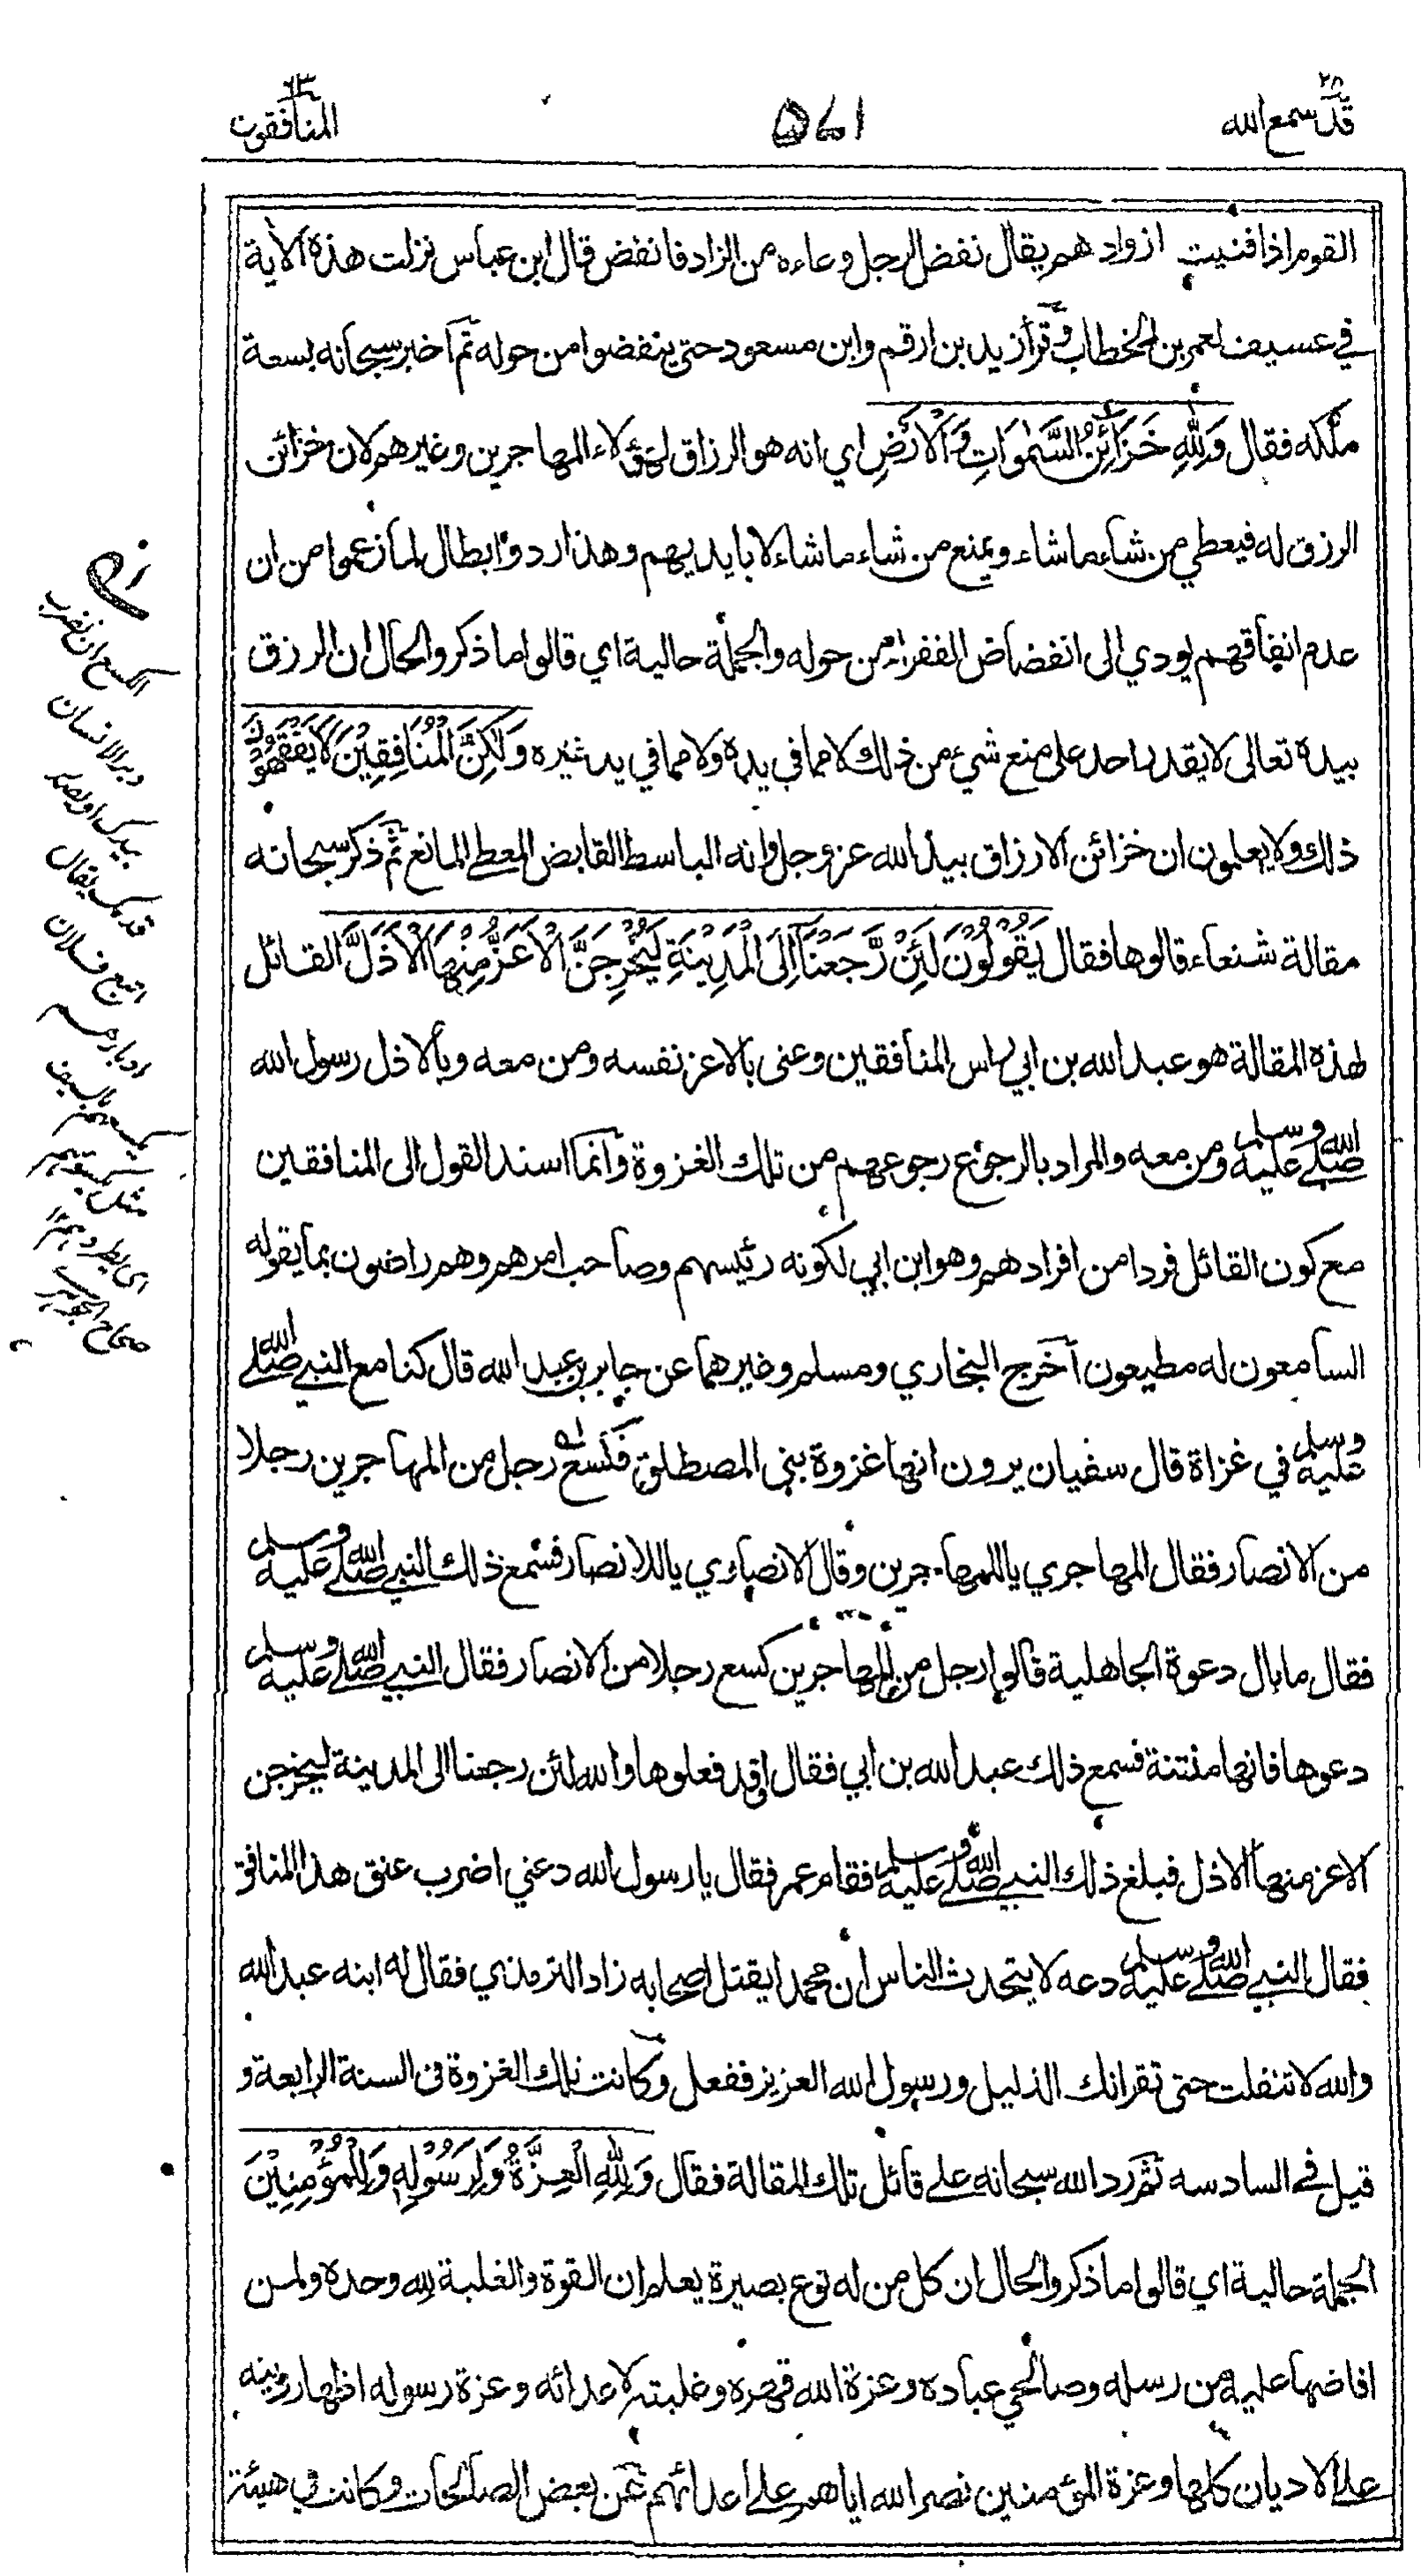 قد سمع الله ٢٨
٥٦١
المنافقون ٦٣
القوم اذا فنيت ازوادهم يقال نفض الرجل وعاءه من الزاد فانفض قال ابن عباس نزلت هذه الآية
في عسيف لعمر بن الخطاب وقرأ زيد بن ارقم وابن مسعود حتى ينفضوا من حوله ثم اخبر سبحانه بسعة
ملكه فقال وَلِلّٰهِ خَزَآئِنُ السَّمٰوَاتِ وَالْاَرْضِ اي انه هو الرزاق لهؤلاء المهاجرين وغيرهم لان خزائن
الرزق له فيعطي من شاء ما شاء ويمنع من شاء ما شاء لا بايديهم وهذا رد وابطال لما زعموا من ان
عدم انفاقهم يودي الى انفضاض الفقراء من حوله والجملة حالية اي قالوا ما ذكر والحال ان الرزق
بيده تعالى لا يقدر احد على منع شيء من ذلك لا مما في يده ولا مما في يد غيره وَلٰكِنَّ الْمُنَافِقِيْنَ لَا يَفْقَهُوْنَ
ذلك ولا يعلمون ان خزائن الارزاق بيد الله عز وجل وانه الباسط القابض المعطي المانع ثم ذكر سبحانه
مقالة شنعاء قالوها فقال يَقُوْلُوْنَ لَئِنْ رَّجَعْنَآ اِلَى الْمَدِيْنَةِ لَيُخْرِجَنَّ الْاَعَزُّ مِنْهَا الْاَذَلَّ القائل
لهذه المقالة هو عبد الله بن ابي راس المنافقين وعنى بالاعز نفسه ومن معه وبالاذل رسول الله
صلى الله عليه وسلم ومن معه والمراد بالرجوع رجوعهم من تلك الغزوة وانما اسند القول الى المنافقين
مع كون القائل فردا من افرادهم وهو ابن ابي لكونه رئيسهم وصاحب امرهم وهم راضون بما يقوله
السامعون له مطيعون اخرج البخاري ومسلم وغيرهما عن جابر بن عبد الله قال كنا مع النبي صلى الله
عليه وسلم في غزاة قال سفيان يرون انها غزوة بني المصطلق فكسع رجل من المهاجرين رجلا
من الانصار فقال المهاجري يا للمهاجرين وقال الانصاري يا للانصار فسمع ذلك النبي صلى الله عليه وسلم
فقال ما بال دعوة الجاهلية قالوا رجل من المهاجرين كسع رجلا من الانصار فقال النبي صلى الله عليه وسلم
دعوها فانها منتنة فسمع ذلك عبد الله بن ابي فقال اقد فعلوها والله لئن رجعنا الى المدينة ليخرجن
الاعز منها الاذل فبلغ ذلك النبي صلى الله عليه وسلم فقام عمر فقال يا رسول الله دعني اضرب عنق هذا المنافق
فقال النبي صلى الله عليه وسلم دعه لا يتحدث الناس ان محمدا يقتل اصحابه زاد الترمذي فقال له ابنه عبد الله
والله لا تنفلت حتى تقر انك الذليل ورسول الله العزيز ففعل وكانت تلك الغزوة في السنة الرابعة و
قيل في السادسه ثم رد الله سبحانه على قائل تلك المقالة فقال وَلِلّٰهِ الْعِزَّةُ وَلِرَسُوْلِهٖ وَلِلْمُؤْمِنِيْنَ
الجملة حالية اي قالوا ما ذكر والحال ان كل من له نوع بصيرة يعلم ان القوة والغلبة لله وحده ولمن
افاضها عليه من رسله وصالحي عباده وعزة الله قهره وغلبته لاعدائه وعزة رسوله اظهار دينه
على الاديان كلها وعزة المؤمنين نصر الله اياهم على اعدائهم عن بعض الصالحات وكانت في هيئة
الكسع ان تضرب
دبر الانسان
بيدك او بصدر
قدمك يقال
اتبع فلان
ادبارهم
يكسعهم بالسيف
مثل يكسؤهم
اي يطردهم ١٢
صحاح الجوهري